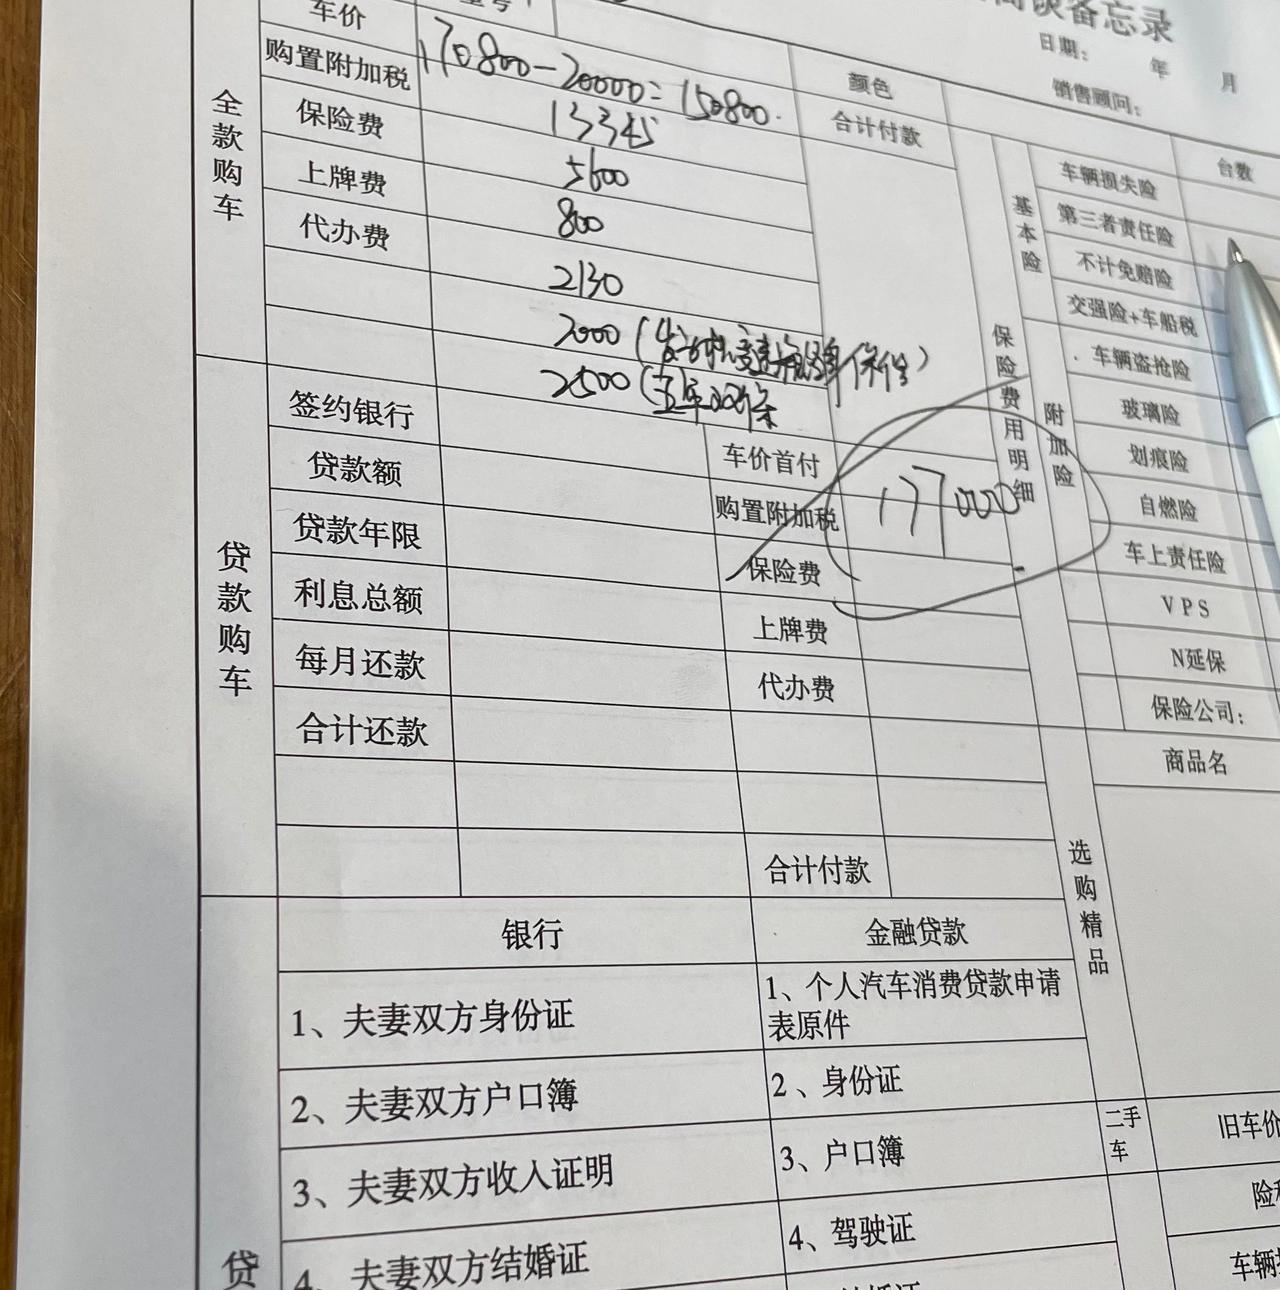 备忘录
日期： 年 月
销售顾问：
车价
170800-20000=150800.
颜色
台数
购置附加税
13345
合计付款
保险费
5600
上牌费
800
代办费
2130
2000
2500
全款购车
基本险
车辆损失险
第三者责任险
不计免赔险
交强险+车船税
保险费用明细
附加险
车辆盗抢险
玻璃险
划痕险
自燃险
车上责任险
VPS
N延保
保险公司：
177000
贷款购车
签约银行
车价首付
贷款额
购置附加税
贷款年限
保险费
利息总额
上牌费
每月还款
代办费
合计还款
合计付款
选购精品
商品名
银行
金融贷款
1、夫妻双方身份证
1、个人汽车消费贷款申请
表原件
2、夫妻双方户口簿
2、身份证
3、夫妻双方收入证明
3、户口簿
4、夫妻双方结婚证
4、驾驶证
二手车
旧车价
贷
车辆